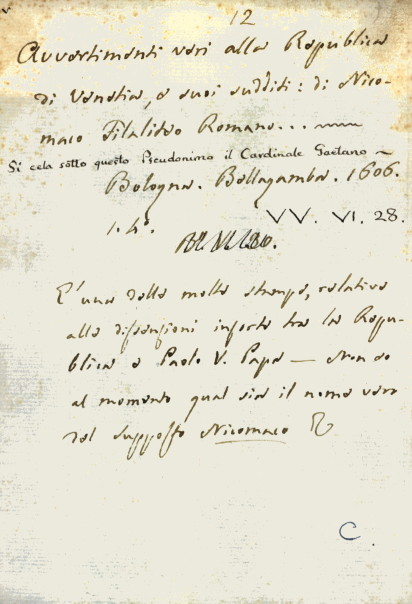 12
Avvertimenti veri alla Republica
di Venetia, e suoi sudditi: di Nico-
maco Filaliteo Romano...
Si cela sotto questo Pseudonimo il Cardinale Gaetano
Bologna. Bellagamba. 1606.
1. 4º. VV. VI. 28.
E' una delle molte stampe, relative
alle dissenzioni insorte tra la Repu-
blica e Paolo V. Papa — Non so
al momento qual sia il nome vero
del supposto Nicomaco
C.